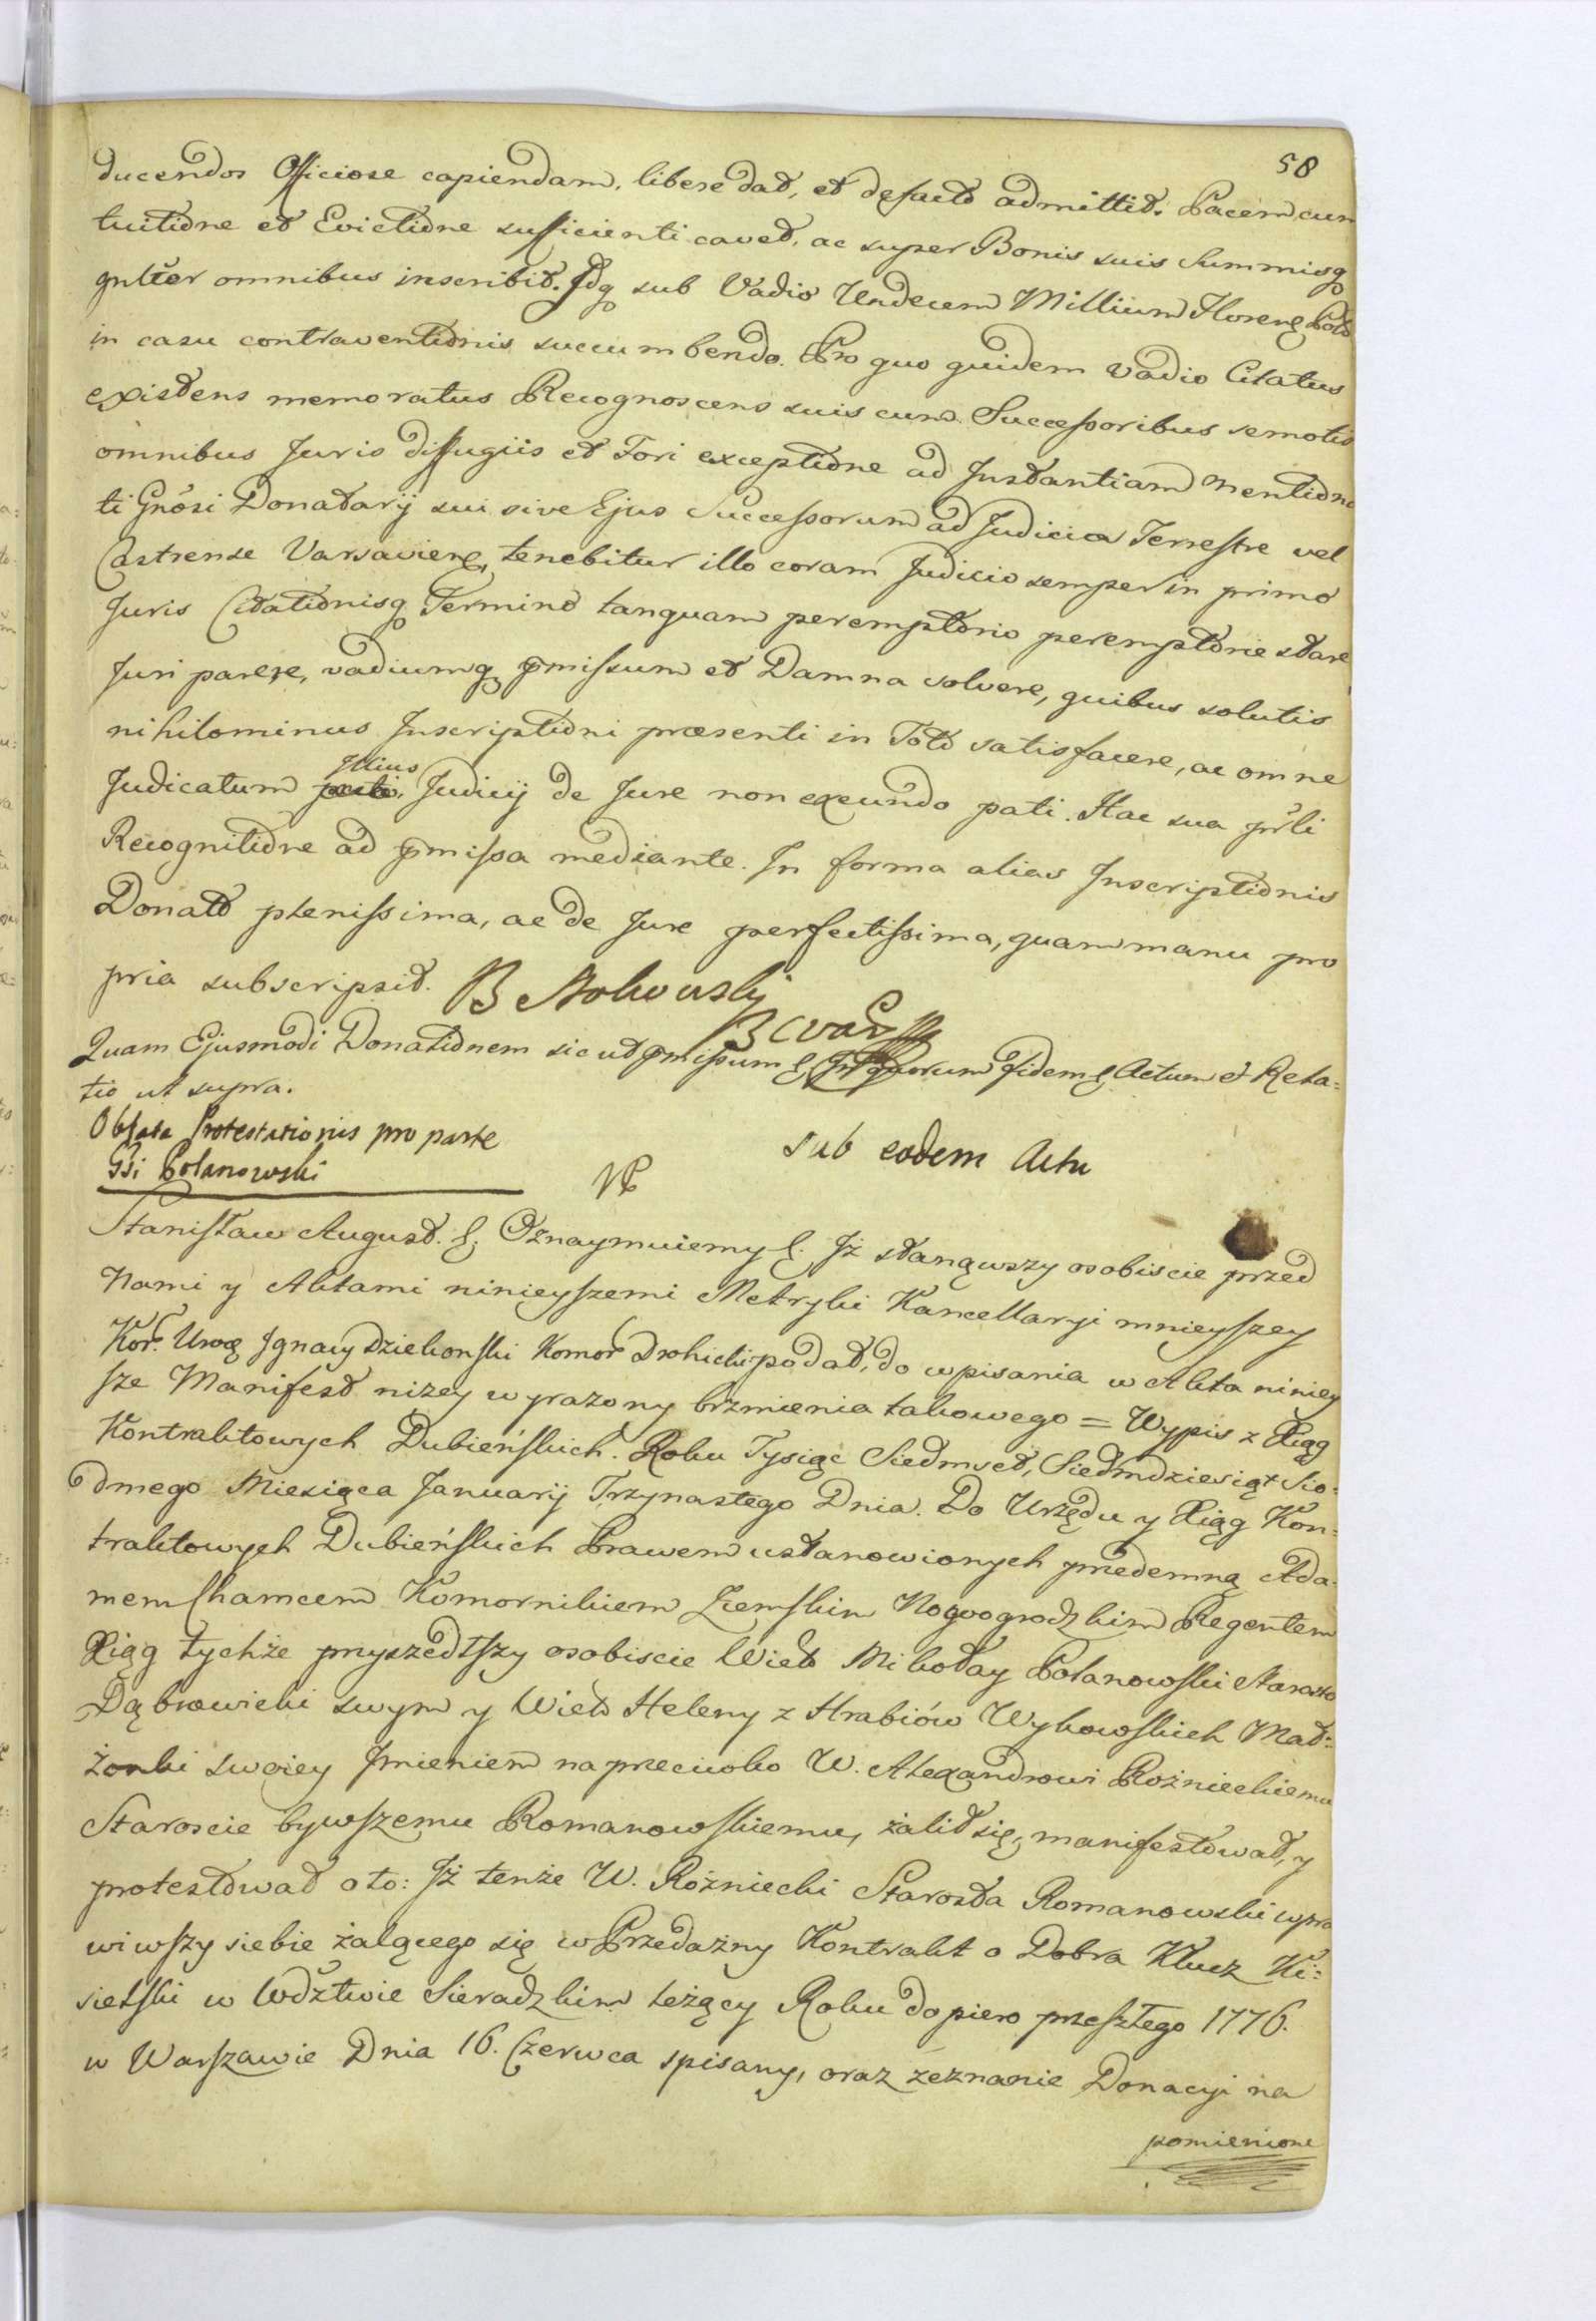 58
ducendos Officiose capiendam, libere dat, et defacto admittit. Pacem cum
tuitione et Evictione sufficienti cavet, ac super Bonis suis Summisq
gnlter omnibus inscribit. Idq sub Vadio Undecem Millium Floreng Pols
in casu contraventionis succumbendo. Pro quo quidem vadio Citatus
existens memoratus Recognoscens suis cum Successoribus remotis
omnibus Juris diffugiis et Fori exceptione ad Instantiam mentiona
ti Gnosi Donatarij sui sive Ejus Successorum ad Judicia Terrestre vel
Castrense Varsavieng, tenebitur illo coram Judicio semper in primo
Juris Citationisq Termino tanquam peremptorio peremptorie stare
Juri parere, vadiumq pmissum et Damna solvere, quibus solutis
nihilominus Inscriptioni praesenti in Toto satisfacere, ac omne
Judicatum Illius Judicij de Jure non exeundo pati. Hac sua pnli
Recognitione ad pmissa mediante. In forma alias Inscriptionis
Donato plenissima, ac de Jure perfectissima, quam manu pro
pria subscripsit. B Stokowsky
Quam Ejusmodi Donationem sic ut pmissum &. In quorum fidem &. Actum et Rela=
tio ut supra.
Oblata Protestationis pro parte
Gsi Polanowski
sub eodem Actu
Stanisław August. &. Oznaymuiemy &. Iż stanąwszy osobiscie przed
Nami y Aktami ninieyszemi Metryki Kancellaryi mnieyszey
Kor. Uroę Ignacy Dziekonski Komor Drohicki podał, do wpisania w Akta niniey
sze Manifest niżey wyrażony brzmienia takowego = Wypis z Xiąg
Kontraktowych Dubieńskich. Roku Tysiąc Siedmset, Siedmdziesiąt Sio=
dmego Miesiąca Januarij Trzynastego Dnia. Do Urzędu y Xiąg Kon=
traktowych Dubieńskich Prawem ustanowionych przedemną Ada=
mem Chamcem Komornikiem Ziemskim Nogwogrodzkim Regentem
Xiąg tychże przyszedłszy osobiscie Wielo Mikołay Polanowski Starosta
Dąbrowicki swym y Wielo Heleny z Hrabiów Wykowskich Mał=
żonki swoiey Imieniem naprzeciwko W. Alexandrowi Rożnieckiemu
Staroscie bywszemu Romanowskiemu, żalił się, manifestował, y
protestował o to: Iż tenże W. Rożniecki Starosta Romanowski wpra
wiwszy siebie żalącego się w Przedażny Kontrakt o Dobra Klucz Ki=
sielski w Wdztwie Sieradzkim leżący Roku dopiero przeszłego 1776.
w Warszawie Dnia 16. Czerwca spisany, oraz zeznanie Donacyi na
pomienione